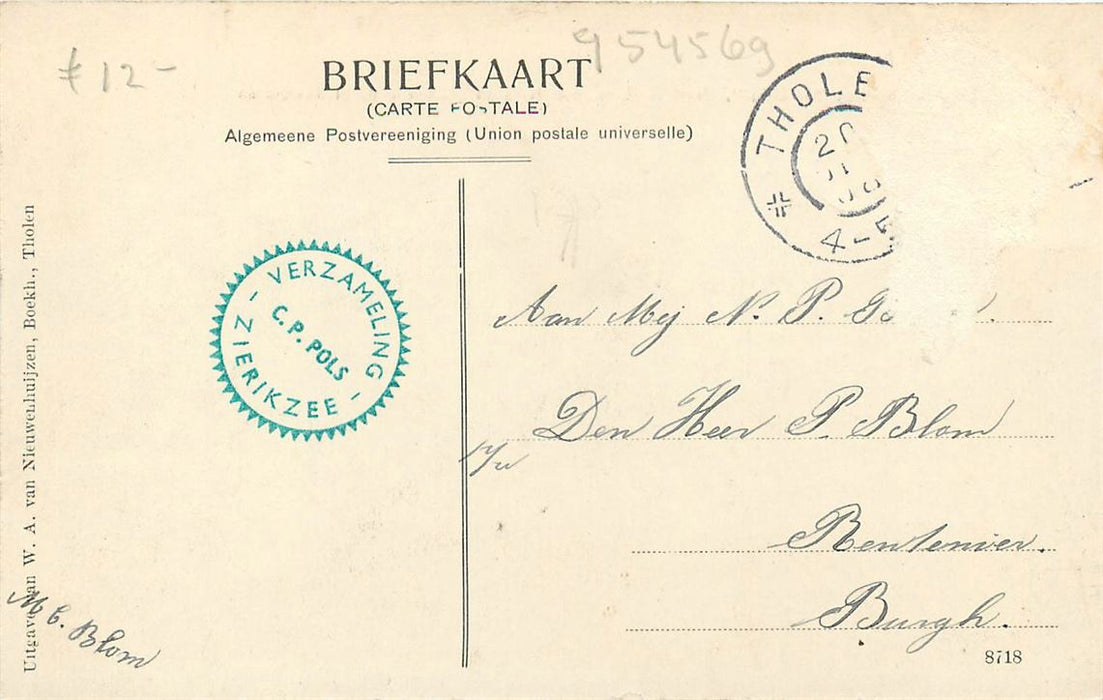 ƒ 12-
954569
BRIEFKAART
(CARTE POSTALE)
Algemeene Postvereeniging (Union postale universelle)
THOLE
20
4-5
VERZAMELING
C. P. POLS
ZIERIKZEE
Aan Mej N. P.
Den Heer P. Blom
Rentenier.
Burgh.
8718
Uitgave van W. A. van Nieuwenhuijzen, Boekh., Tholen
M C. Blom